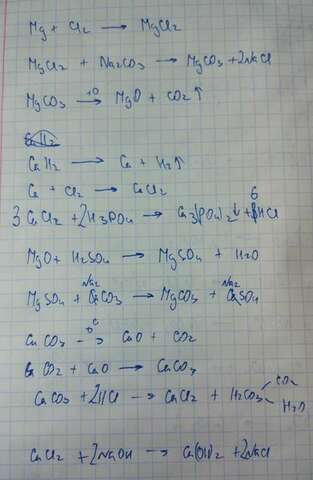 Mg + Cl2 → MgCl2
MgCl2 + Na2CO3 → MgCO3 + 2NaCl
MgCO3 →tO MgO + CO2↑
CaH2 → Ca + H2↑
Ca + Cl2 → CaCl2
3CaCl2 + 2H3PO4 → Ca3(PO4)2↓ + 6HCl
MgO + H2SO4 → MgSO4 + H2O
MgSO4 + Na2CO3 → MgCO3 + Na2SO4
CaCO3 →OC CaO + CO2
CO2 + CaO → CaCO3
CaCO3 + 2HCl → CaCl2 + H2CO3 CO2 H2O
CaCl2 + 2NaOH → Ca(OH)2 + 2NaCl